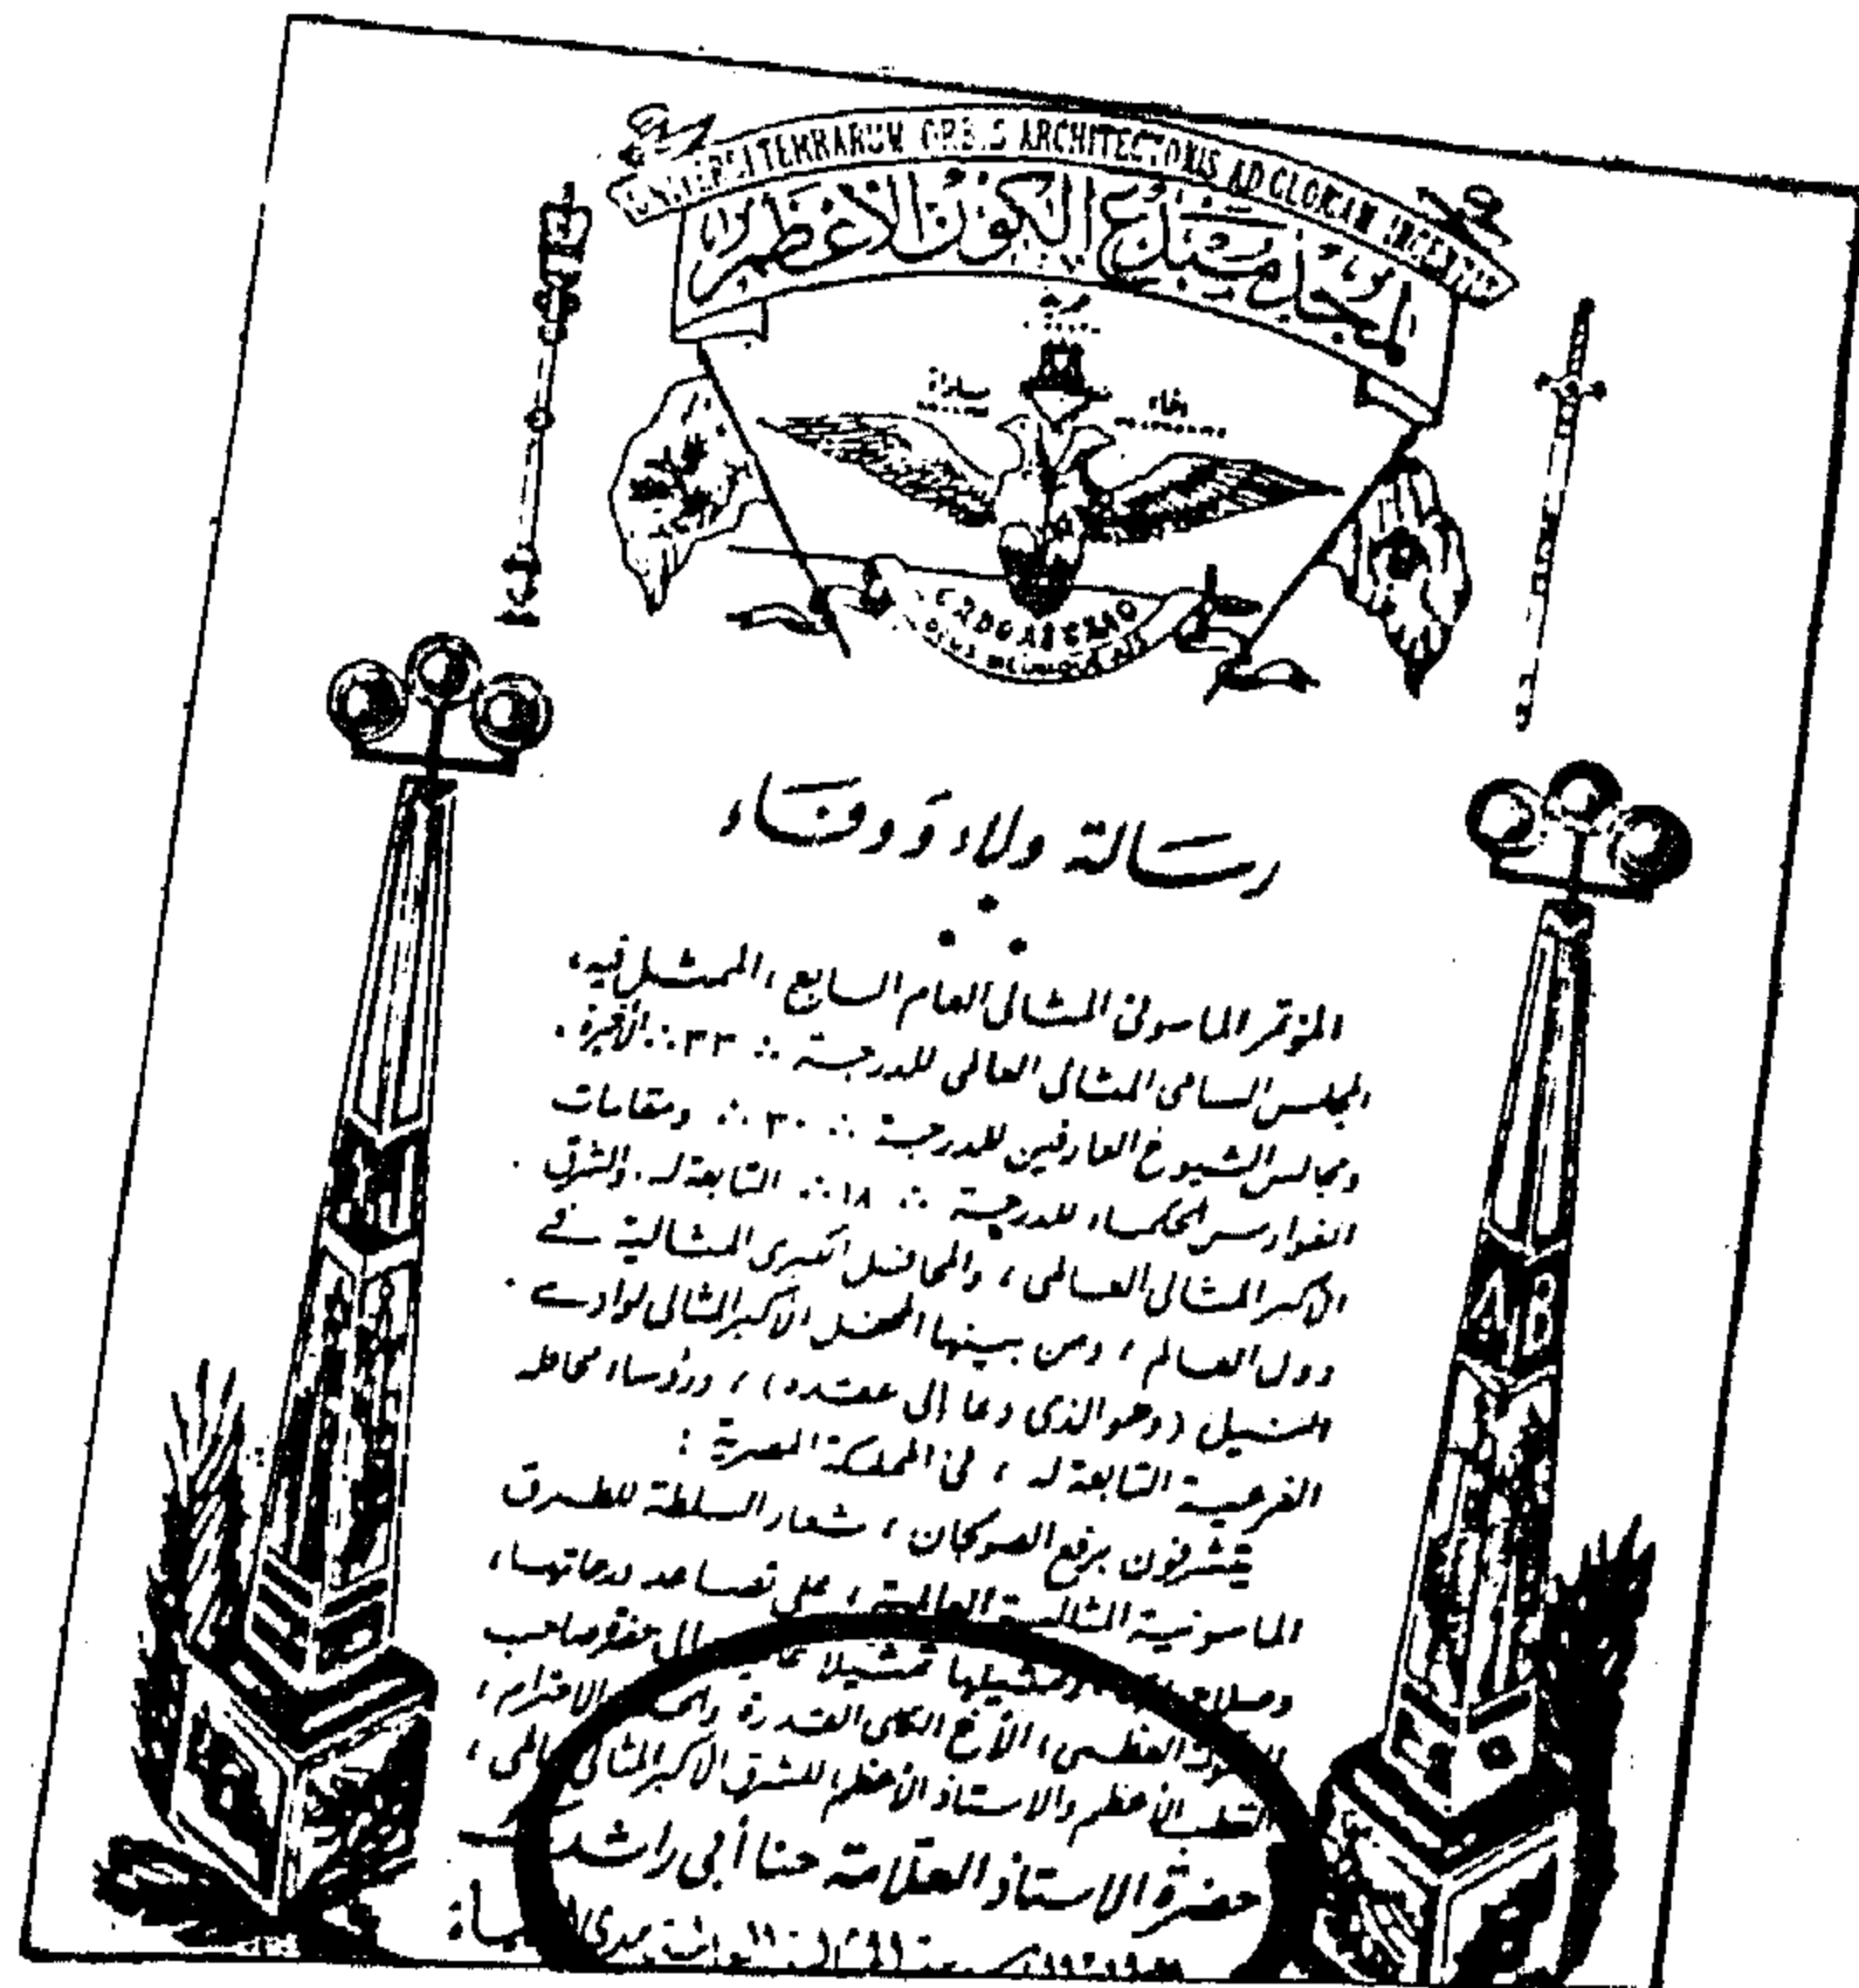 UNIVERSI TERRARUM ORBIS ARCHITECTONIS AD GLORIAM INGENTIS
لمجد مهندس الكون الأعظم
حرية
مساواة
إخاء
ORDO AB CHAO
DEUS MEUMQUE JUS
رسالة ولاء ووفاء
المؤتمر الماسوني المثالي العام السابع، الممثل فيه،
المجلس السامي المثالي العالمي للدرجة ∴ ٣٣ ∴ الأخيرة.
ومجالس الشيوخ العارفين للدرجة ∴ ٣٠ ∴ ومقامات
الفوارس الحكماء للدرجة ∴ ١٨ ∴ التابعة له. والشرق
الأكبر المثالي العالمي، والمحافل الكبرى المثالية في
دول العالم، ومن بينها المحفل الأكبر المثالي لوادي
النيل (وهو الذي دعا إلى عقده)، ورؤساء محافله
الفرعية التابعة له، في المملكة المصرية:
يتشرفون برفع الصولجان، شعار السلطة للطرق
الماسونية المثالية العالمية، على تصاعد درجاتها،
تمثيلها تمثيلا صاحب
العظمى، الأخ الكلي القدرة والاحترام،
الأعظم والأستاذ الأعظم للشرق الأكبر المثالي العالمي،
حضرة الاستاذ العلامة حنا أبي راشد
مدى الحياة